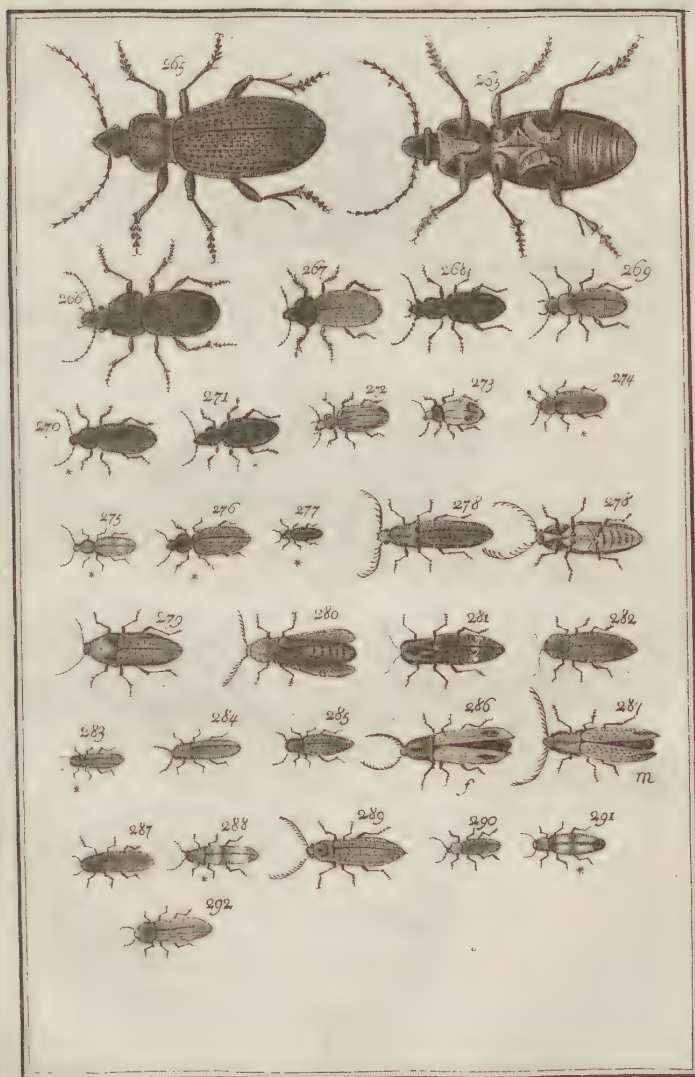 265 265
266 267 268 269
270 271 272 273 274
* *
275 276 277 278 278
* * *
279 280 281 282
283 284 285 286
* f m
287 288 289 290 291
* *
292